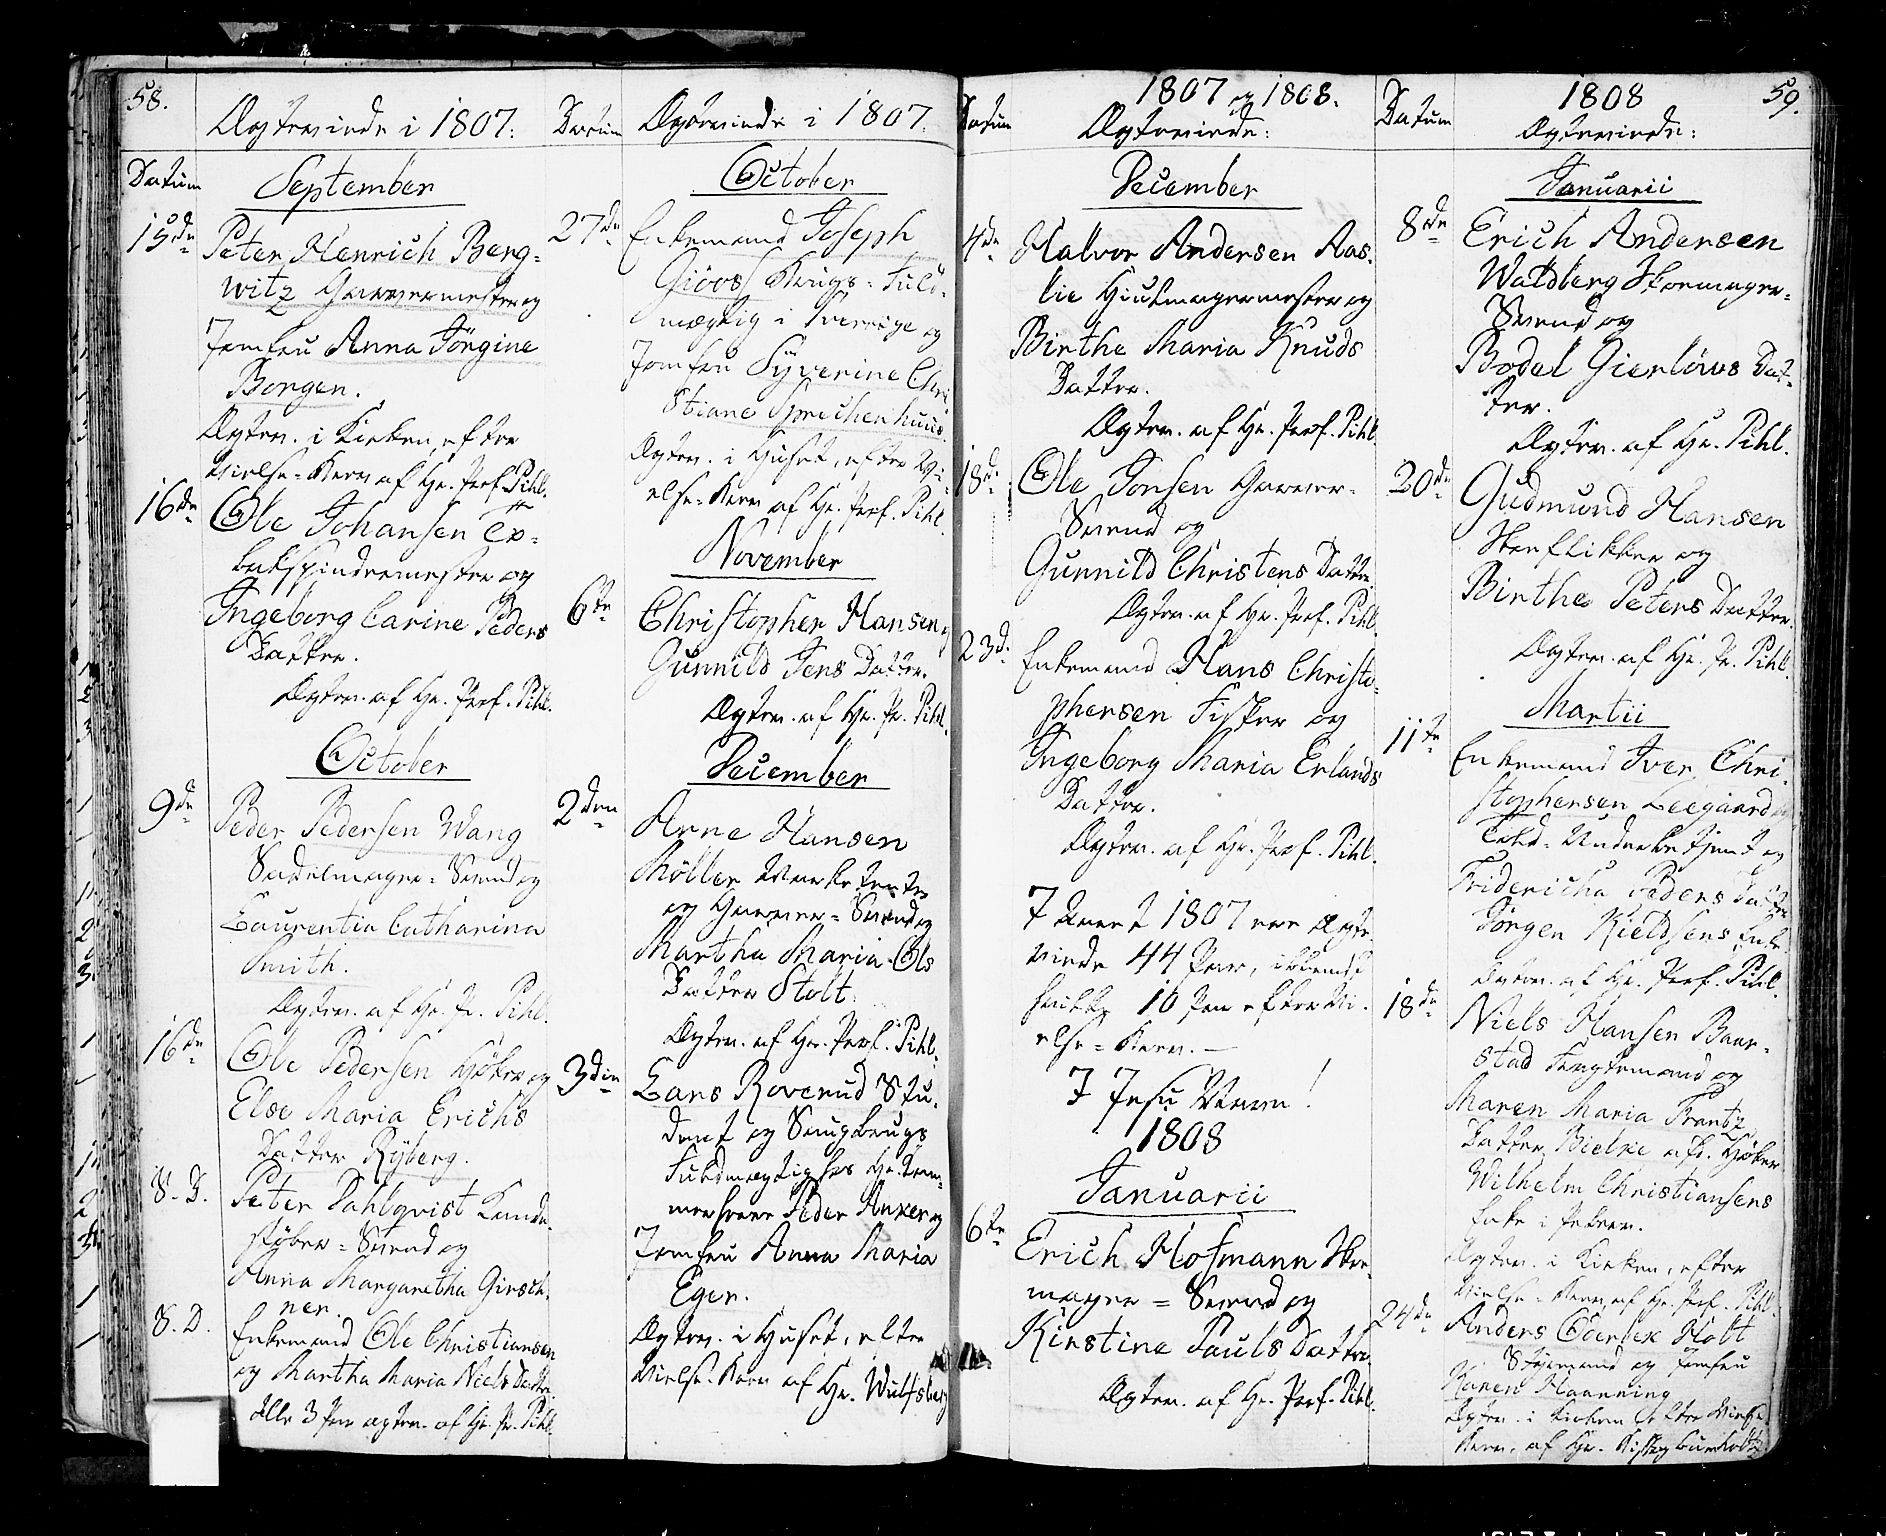 58.
Ægteviede i 1807:
Datum
September
15de
Peter Henrich Berg-
witz Garvermester og
Jomfru Anna Jörgine
Borgen.
Ægtev. i Kirken, efter
Vielse-Brev af Hr. Prof. Pihl.
16de
Ole Johansen
mester og
Ingeborg Carine Peders
Datter.
Ægtev. af Hr. Prof. Pihl.
October
9de
Peder Pedersen Wang
Sadelmager-Svend og
Laurentia Catharina
Smith.
Ægtev. af Hr. Pr. Pihl.
16de
Ole Pedersen Høker og
Else Maria Erichs
Datter Ryberg.
S. D.
Peter Dahlqvist Kande-
støber-Svend og
Anna Margaretha Girsch-
ner.
S. D.
Enkemand Ole Christiansen
og Martha Maria Niels Datter.
Alle 3 Par ægtev. af Hr. Pr. Pihl.
Datum
Ægteviede i 1807.
October
27de
Enkemand Joseph
Fuld-
mægtig i Sverrige og
Jomfru Syverine Chri-
stiane Sprechenhuus.
Ægtev. i Huset, efter Vi-
else-Brev af Hr. Prof. Pihl.
November
6te
Christopher Hansen og
Gunnild Jens Datter.
Ægtev. af Hr. Pr. Pihl.
December
2den
Arne Hansen
Möller
og Garver-Svend og
Martha Maria Ols
Datter Stolt.
Ægtev. af Hr. Prof. Pihl.
3die
Lars Roverud Stu-
dent og Saugbrugs
Fuldmægtig hos Hr. Kam-
merherre Peder Anker og
Jomfru Anna Maria
Eger.
Ægtev. i Huset, efter
Vielse-Brev af Hr. Wulfsberg
Datum
1807 og 1808.
Ægteviede:
December
4de
Halvor Andersen Aas-
lie Hiulmagermester og
Birthe Maria Knuds
Datter.
Ægtev. af Hr. Prof. Pihl.
18de
Ole Jonsen Garver-
Svend og
Gunnild Christens Datter
Ægtev. af Hr. Prof. Pihl.
23de
Enkemand Hans Christo-
phersen Fisker og
Ingeborg Maria Erlands
Datter.
Ægtev. af Hr. Prof. Pihl.
I Aaret 1807 ere ægte-
viede 44 Par, iblandt
hvilke 10 Par efter Vi-
else-Brev. —
I Jesu Navn!
1808
Januarii
6te
Erich Hofmann Skoe-
mager-Svend og
Kirstine Pauls Datter.
Ægtev. af Hr. Prof. Pihl.
Datum
1808
59.
Ægteviede:
Januarii
8de
Erich Andersen
Waldberg Skoemager-
Svend og
Bodel Gierlöws Dat-
ter.
Ægtev. af Hr. Pihl.
20de
Gudmund Hansen
Skoeflikker og
Birthe Peters Datter.
Ægtev. af Hr. Pr. Pihl.
Martii
11te
Enkemand Iver Chri-
stophersen Leegaard
Told-Underbetjent og
Fridericha Peders Datter
Jörgen Kieldsens Enke
Ægtev. af Hr. Prof. Pihl.
18de
Niels Hansen Baar-
stad Fragtemand og
Maren Maria Frantz
Datter Bielke afd. Høker
Wilhelm Christiansens
Enke i Pebren.
Ægtev. i Kirken, efter
Vielse-Brev, af Hr. Prof. Pihl.
24de
Anders Holt
Styrmand og Jomfru
Karen Haanning
Ægtev. i Kirken efter Vielse
Brev, af Hr.